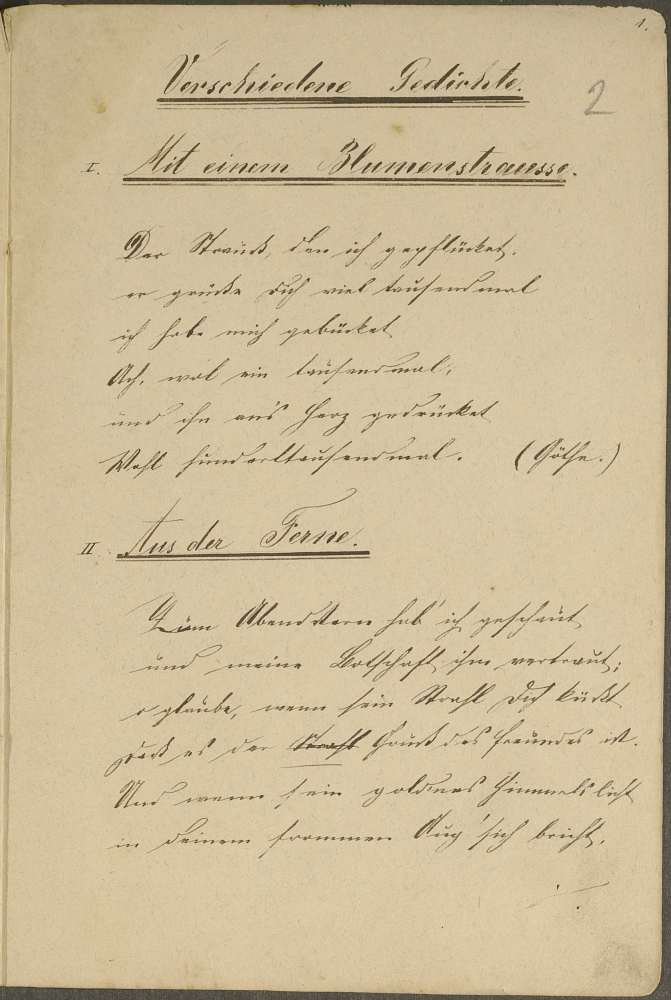 1.
Verschiedene Gedichte.
2
I. Mit einem Blumenstrausse.
Der Strauß, den ich gepflücket,
er grüße Dich viel tausendmal
ich habe mich gebücket
Ach, wol ein tausendmal,
und ihn an's Herz gedrücket
Wohl hunderttausendmal. (Göthe.)
II Aus der Ferne.
Zum Abendstern hab' ich geschaut
und meine Botschaft ihm vertraut;
o glaube, wenn sein Strahl Dich küßt
daß es der Strahl Gruß des Freundes ist.
Und wenn sein goldnes Himmelslicht
in Deinem frommen Aug' sich bricht,
./.